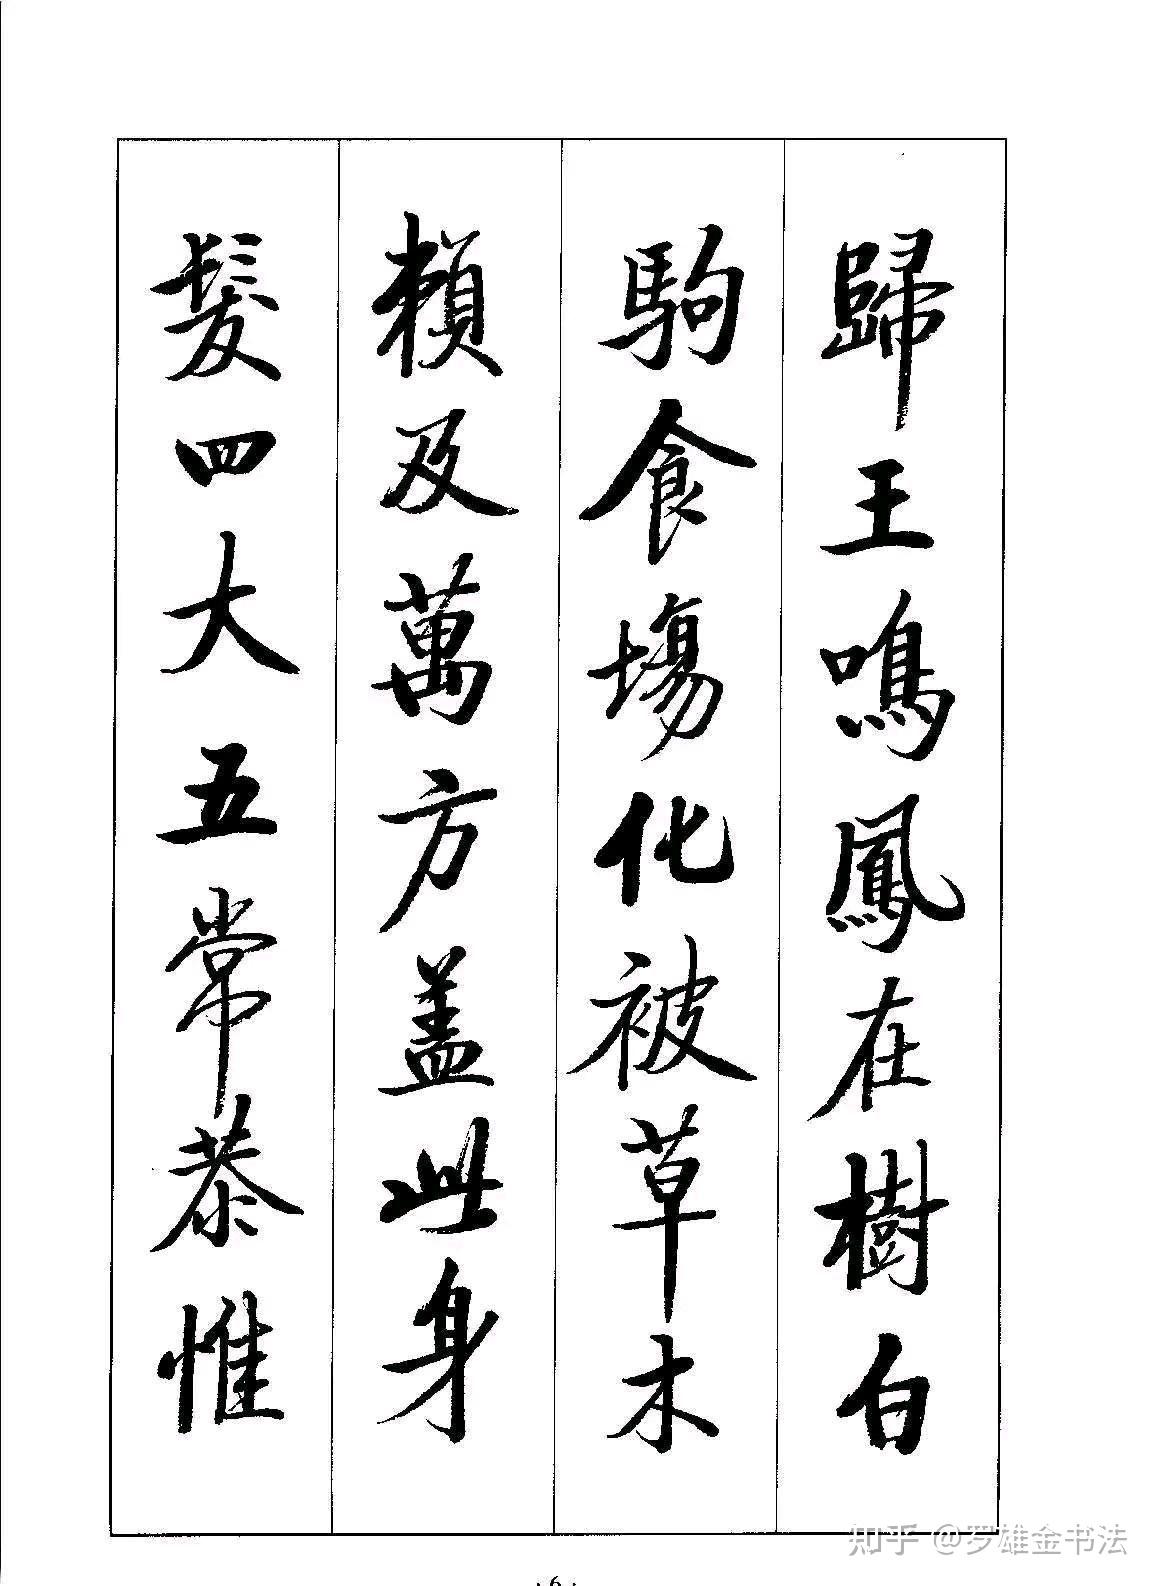 歸王鳴鳳在樹白
駒食場化被草木
賴及萬方盖此身
髮四大五常恭惟
知乎 @罗雄金书法
· 6 ·